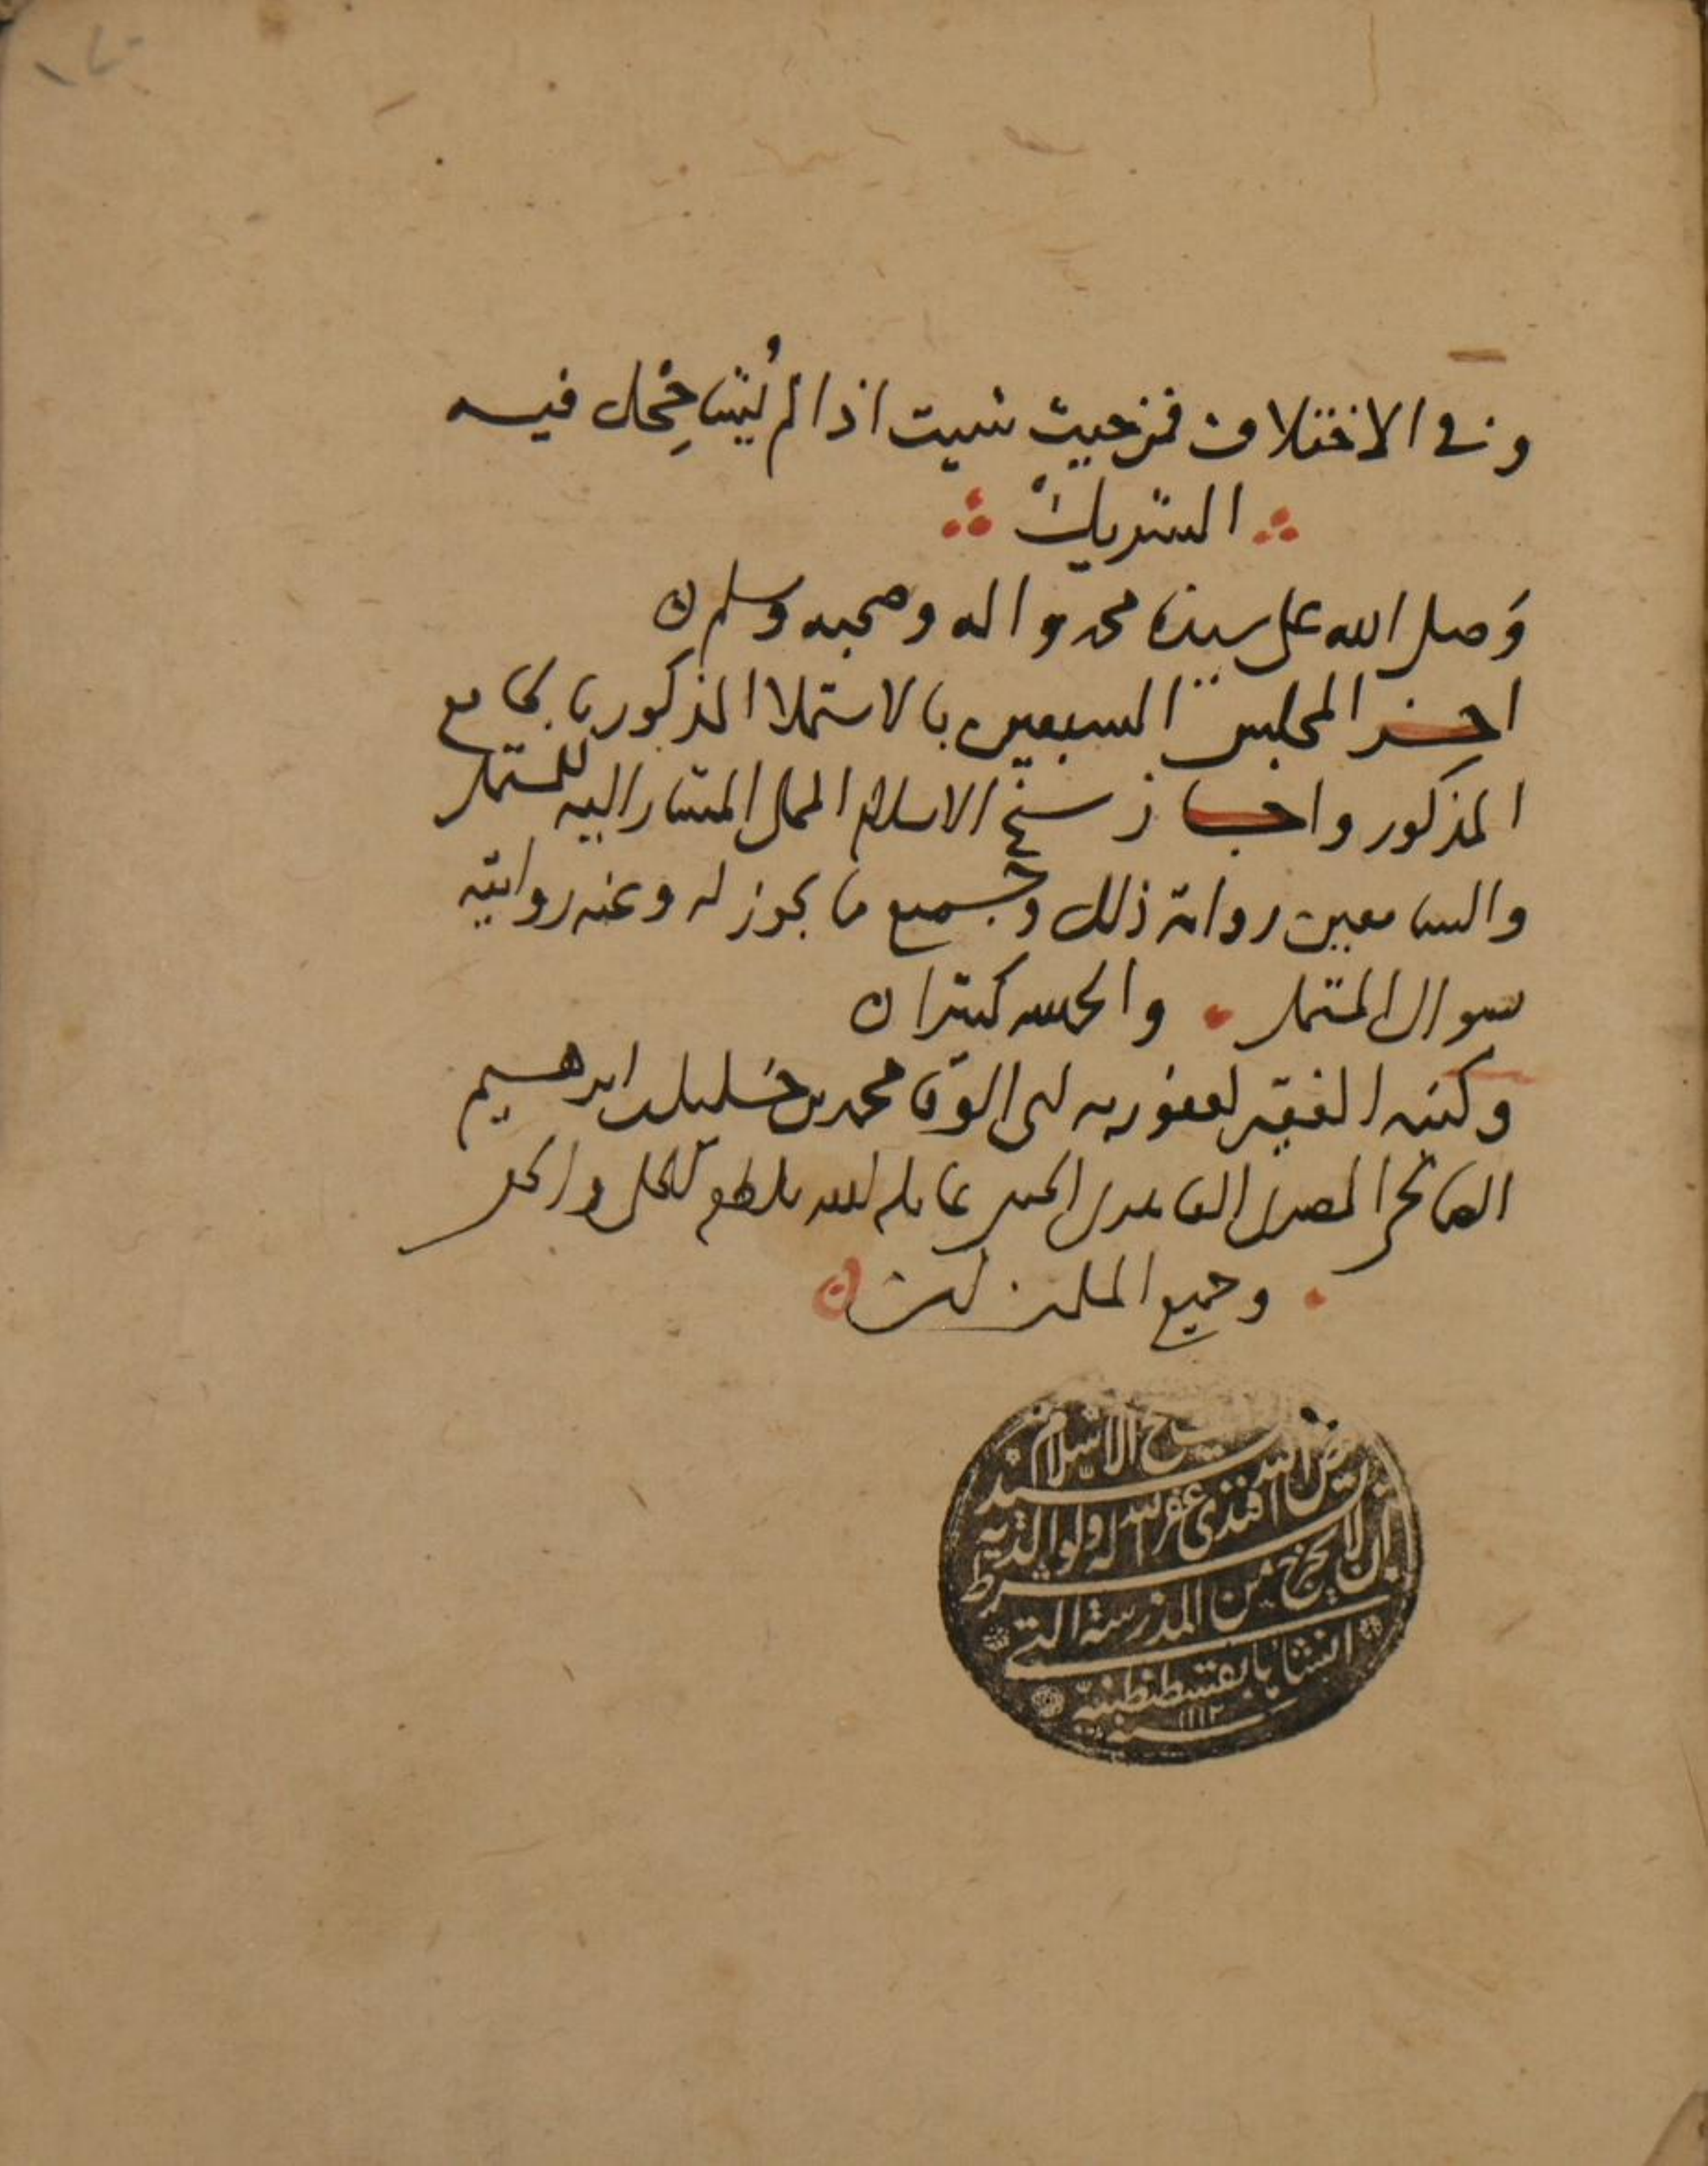 وفي الاختلاف فمن حيث شيت اذا لم يُشَاحِحْك فيه
الشريك
وَصلى الله على سيدنا محمد واله وصحبه وسلم
اخر المجلس السبعين بالاستملا المذكور بالجامع
المذكور واجاز شيخ الاسلام المملى المشار اليه للمستملى
والسامعين رواية ذلك وجميع ما يجوز له وعنه روايته
بسوال المستملى والحمد لله كثيرا
وكتبه الفقير لعفو ربه ابى الوفا محمد بن خليل بن ابرهيم
المصرى الحنفى عامله الله بلطفه
وجميع المسلمين
شيخ الاسلام
فيض الله افندى غفر الله له ولوالديه
بشرط ان لا يخرج من المدرسة التى
انشاها بقسطنطينية
سنة ١١١٢